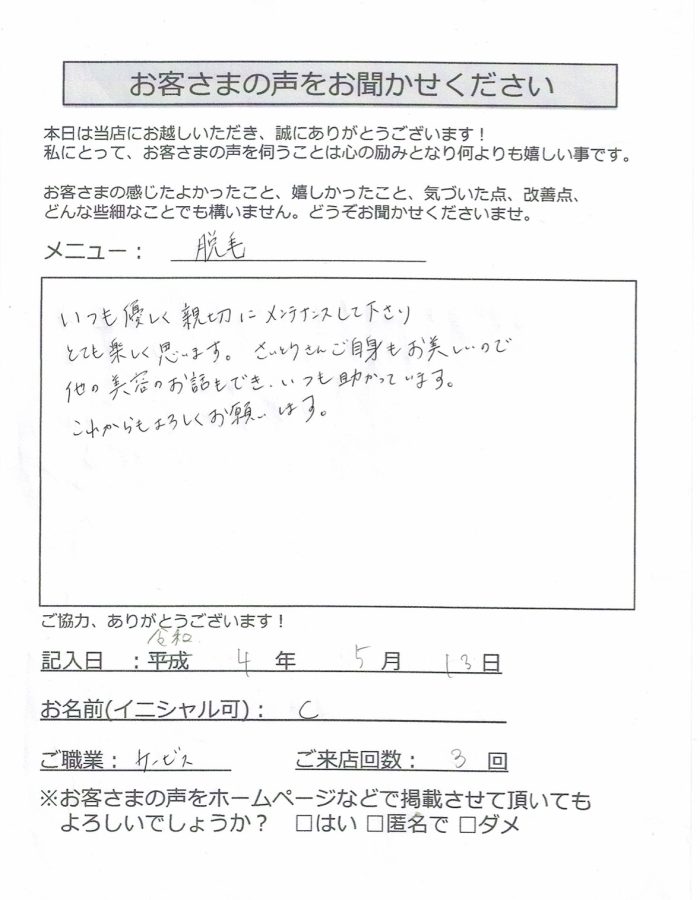 お客さまの声をお聞かせください
本日は当店にお越しいただき、誠にありがとうございます！
私にとって、お客さまの声を伺うことは心の励みとなり何よりも嬉しい事です。
お客さまの感じたよかったこと、嬉しかったこと、気づいた点、改善点、
どんな些細なことでも構いません。どうぞお聞かせくださいませ。
メニュー： 脱毛
いつも優しく親切にメンテナンスして下さり
とても楽しく思います。さいとうさんご自身もお美しいので
他の美容のお話もでき、いつも助かっています。
これからもよろしくお願いします。
ご協力、ありがとうございます！
令和
記入日 ：平成 4 年 5 月 13 日
お名前(イニシャル可)： C
ご職業： サービス ご来店回数： 3 回
※お客さまの声をホームページなどで掲載させて頂いても
よろしいでしょうか？ □はい □匿名で □ダメ